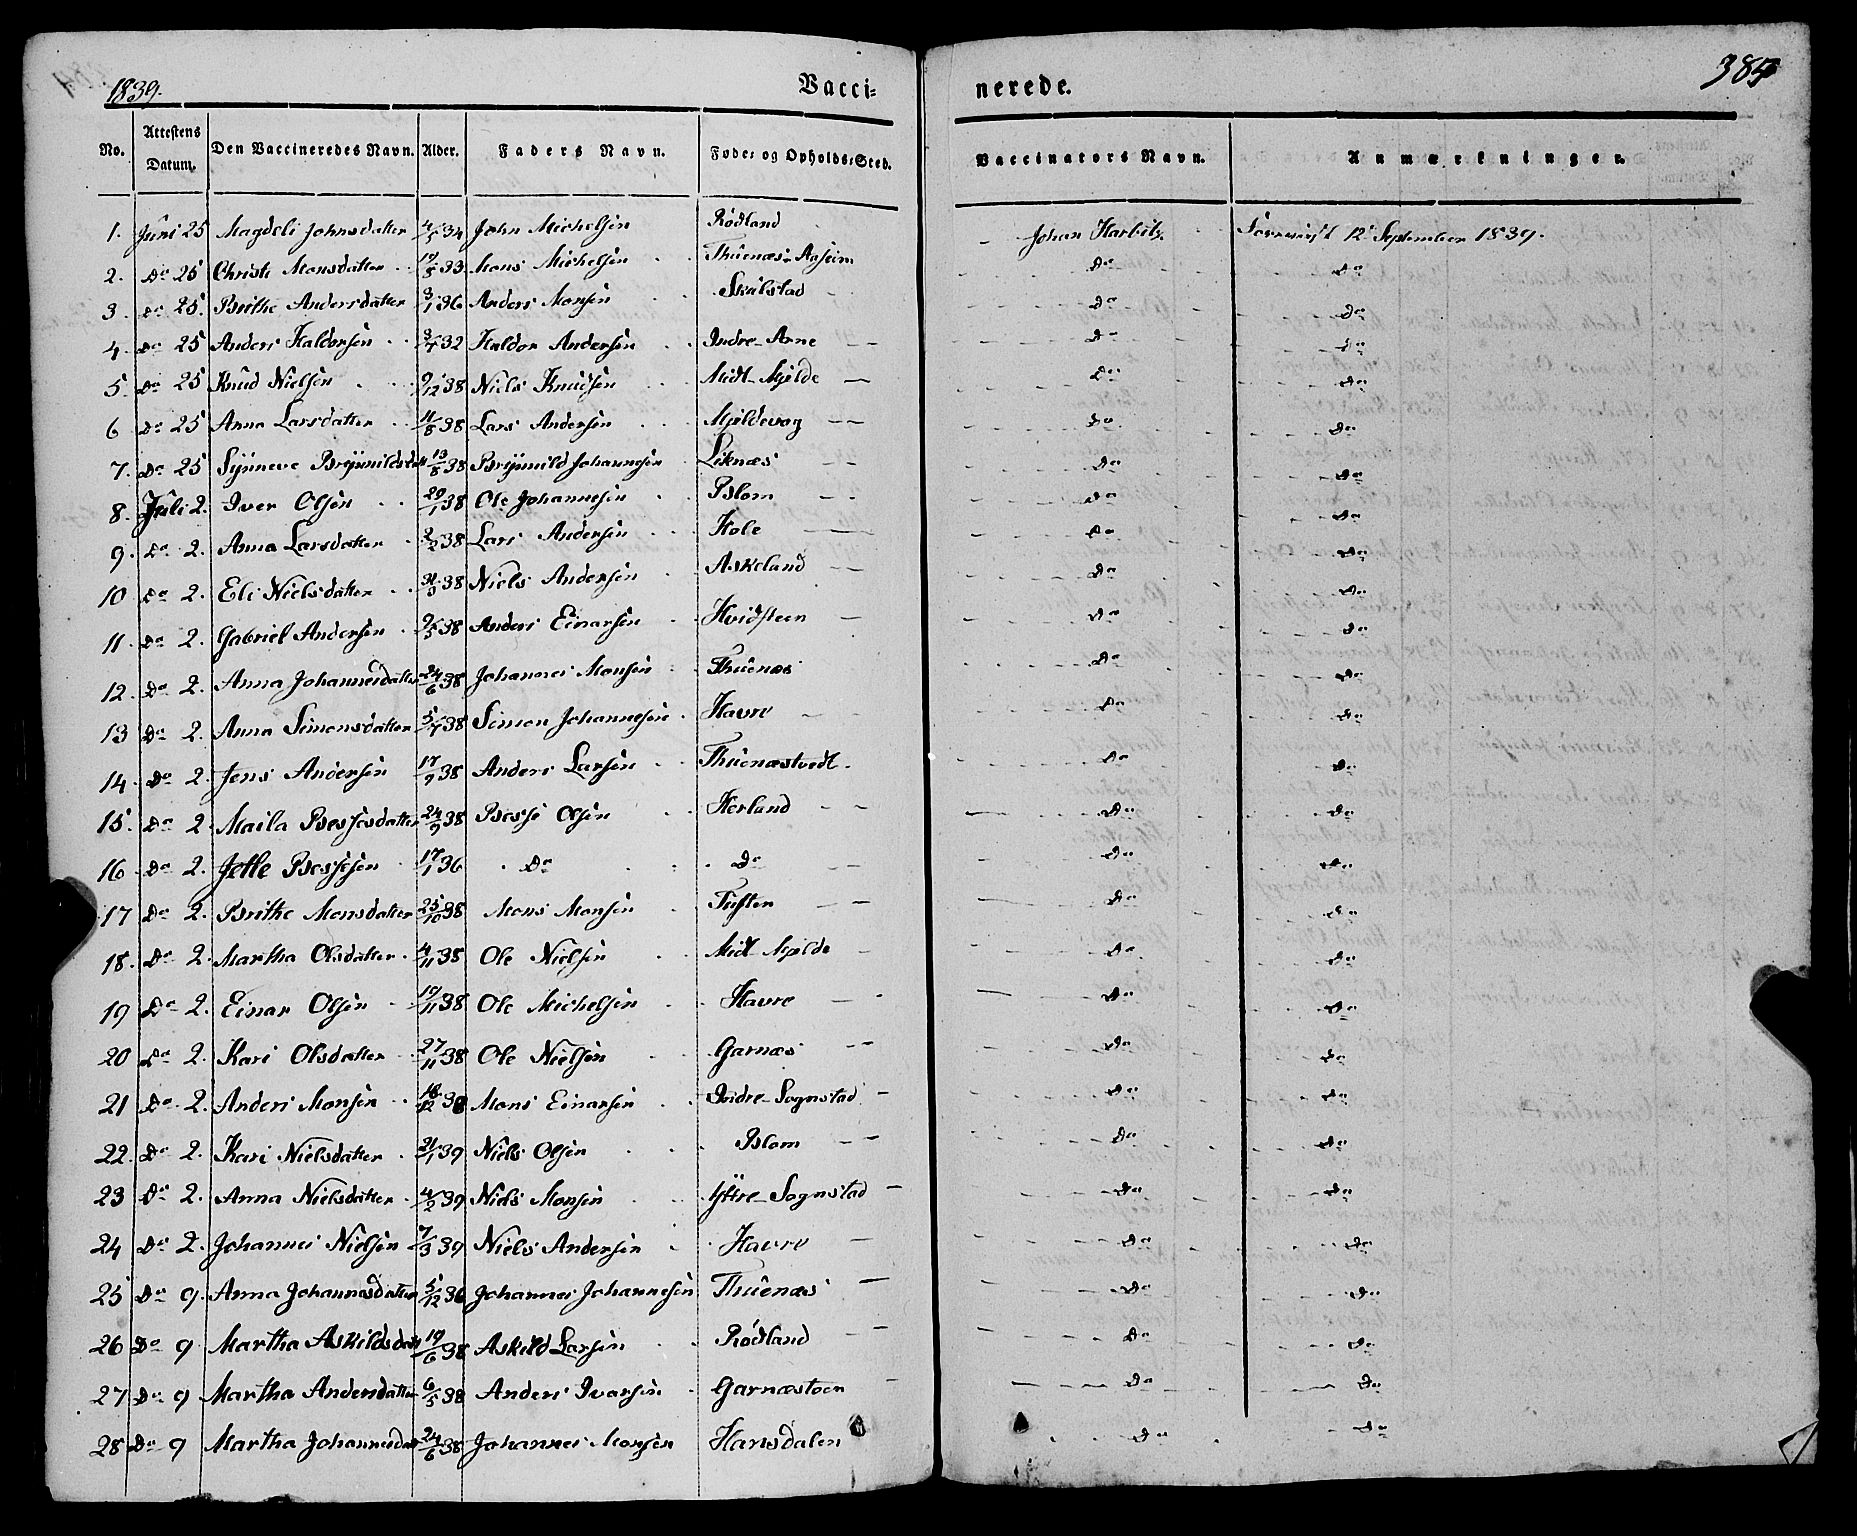 1839.
Vacci-
nerede.
384
No. Attestens Datum. Den Vaccineredes Navn. Alder. Faders Navn. Føde- og Opholds-Sted. Vaccinators Navn. Anmærkninger.
1. Juni 25 Magdeli Johnsdatter 4/5 34 John Michelsen Rødland Johan Harbitz Forevist 12 September 1839.
2. Do 25 Christi Monsdatter 19/5 33 Mons Michelsen Thuenæs-Aaseim Do Do
3. Do 25. Brithe Andersdatter 3/1 36 Anders Monsen Skulstad Do Do
4. Do 25 Anders Haldorsen 3/7 32 Haldor Andersen Indre-Arne Do Do
5. Do 25 Knud Nielsen 9/12 38 Niels Knudsen Midt-Mjelde Do Do
6 Do 25 Anna Larsdatter 11/8 38 Lars Andersen Mjeldevog Do Do
7. Do 25 Synneve Brynnildsdtr 13/8 38 Brynnild Johannesen Liknæs Do Do
8. Juli 2. Iver Olsen 29/1 38 Ole Johannesen Blom Do Do
9. Do 2. Anna Larsdatter 2/2 38 Lars Andersen Hole Do Do
10 Do 2. Eli Nielsdatter 31/3 38 Niels Andersen Askeland Do Do
11. Do 2. Gabriel Andersen 9/5 38 Anders Einarsen Hvidsteen Do Do
12. Do 2. Anna Johannesdatter 24/6 38 Johannes Monsen Thuenæs Do Do
13 Do 2. Anna Simonsdatter 5/7 38 Simon Johannesen Havre Do Do
14. Do 2. Jens Andersen 17/9 38 Anders Larsen Thuenæstvedt. Do Do
15. Do 2 Maila Bessesdatter 24/9 38 Besse Olsen Herland Do Do
16 Do 2. Jetle Bessesen 17/1 36 Do Do Do Do
17 Do 2. Brithe Monsdatter 25/10 38 Mons Monsen Tuften Do Do
18. Do 2. Martha Olsdatter 4/11 38 Ole Nielsen Midt-Mjelde Do Do
19 Do 2. Einar Olsen 19/11 38 Ole Michelsen Havre Do Do
20 Do 2. Kari Olsdatter 27/11 38 Ole Nielsen Garnæs Do Do
21 Do 2. Anders Monsen 18/12 38 Mons Einarsen Indre-Sognstad Do Do
22. Do 2. Kari Nielsdatter 21/1 39 Niels Olsen Blom Do Do
23 Do 2. Anna Nielsdatter 4/2 39 Niels Monsen Yttre-Sognstad Do Do
24 Do 2. Johannes Nielsen 7/3 39 Niels Andersen Havre Do Do
25 Do 9. Anna Johannesdatter 5/12 36 Johannes Johannesen Thuenæs Do Do
26 Do 9 Martha Askildsdatr 19/6 38 Askild Larsen Rødland Do Do
27 Do 9 Martha Andersdatter 6/5 38 Anders Ivarsen Garnæstøen Do Do
28 Do 9 Martha Johannesdatr 24/6 38 Johannes Monsen Hansdalen Do Do